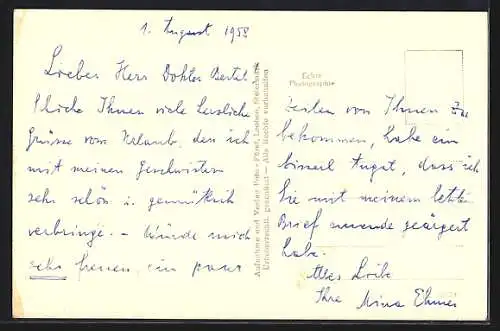 1. August 1958
Lieber Herr Doktor Bertel
Schicke Ihnen viele herzliche
Grüsse vom Urlaub, den ich
mit meinen Geschwistern
sehr schön u. gemütlich
verbringe. - Würde mich
sehr freuen, ein paar
Aufnahme und Verlag Foto-Fürst, Leoben, Steiermark
Urheberrechtl. geschützt - Alle Rechte vorbehalten
Echte
Photographie
Zeilen von Ihnen zu
bekommen, habe ein
bisserl Angst, dass ich
Sie mit meinem letzten
Brief geärgert
habe.
Alles Liebe
Ihre Mina